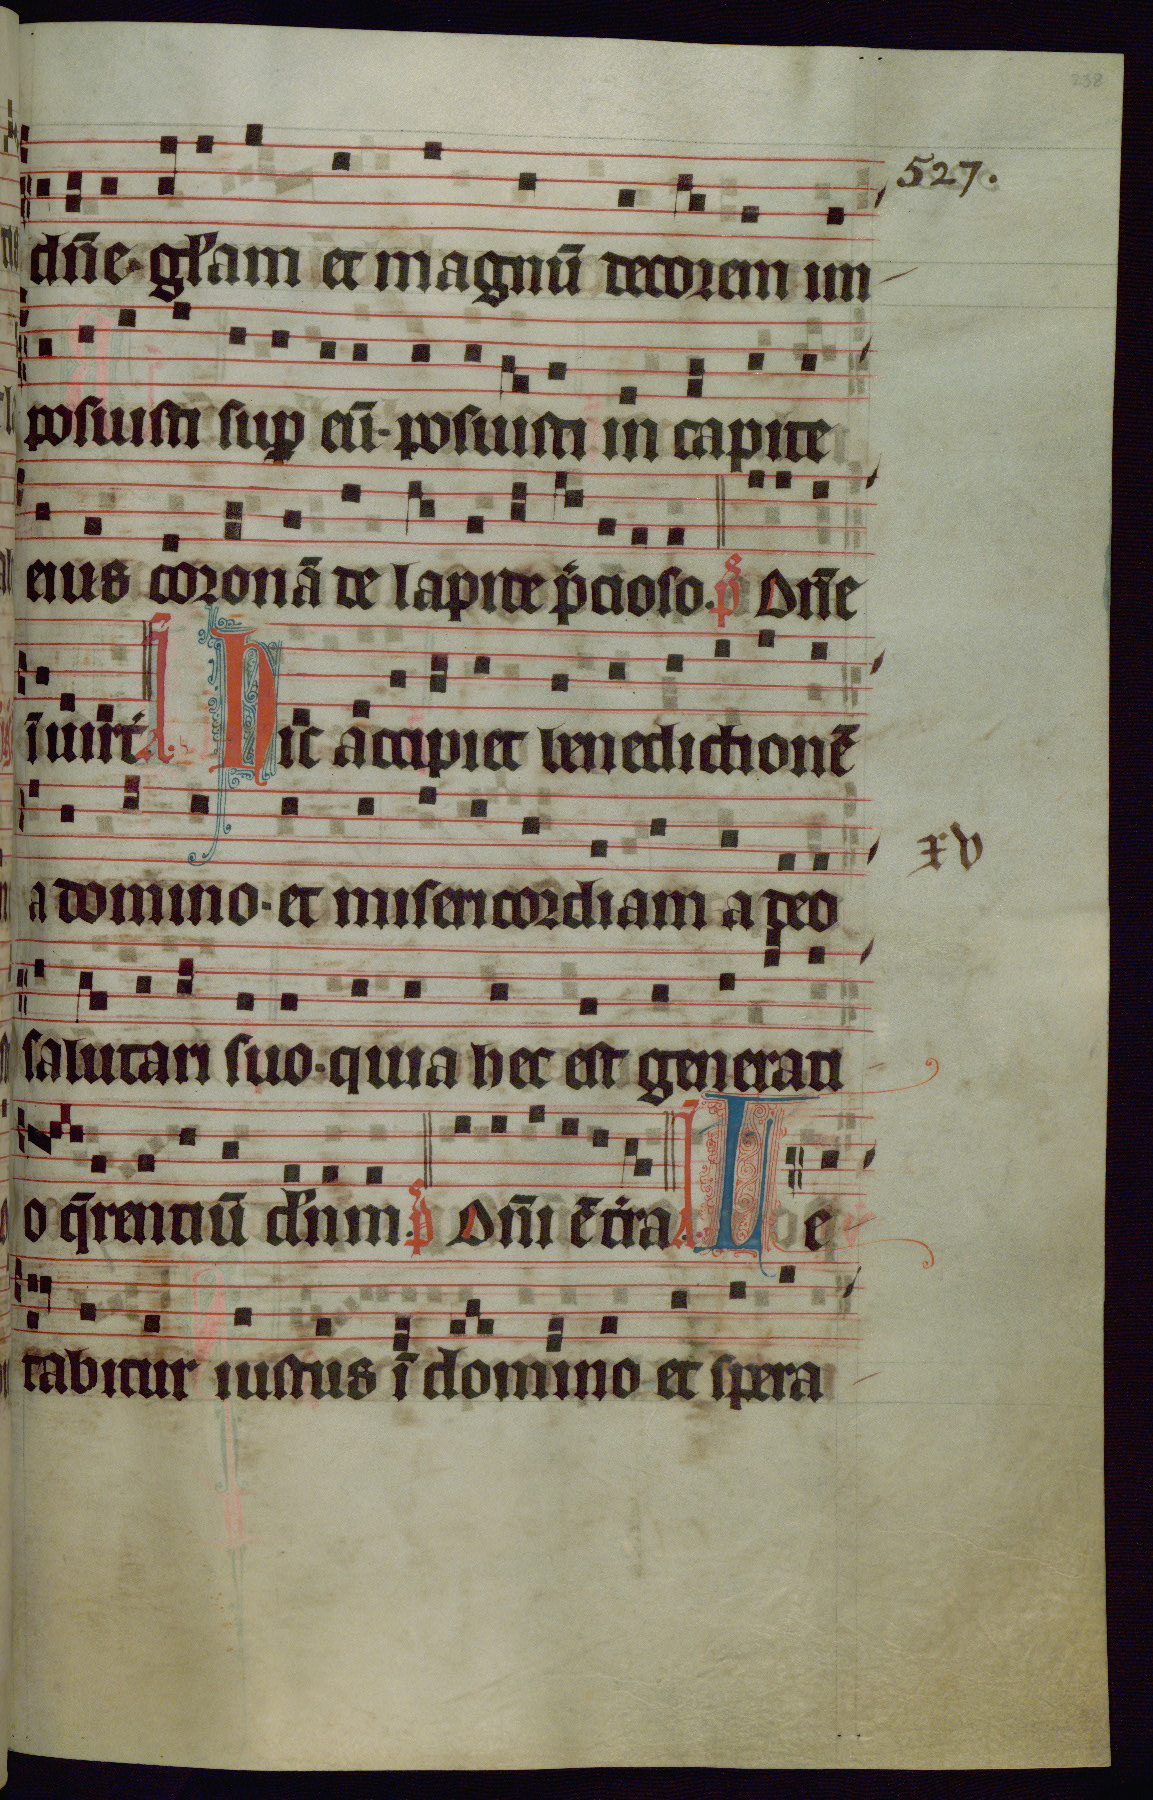 238
527.
dn̄e· gl̄am et magnū decorem im
posuisti sup̱ eū· posuisti in capite
eius coronā de lapide p̄cioso· p̄s Dn̄e
ī uirt̄ A. Hic accipiet benedictionē
xv
a domino· et misericordiam a deo
salutari suo· quia hec est generati
o q̄rentiū dn̄m· p̄s Dn̄i ē t̄ra A. Le
tabitur iustus ī domino et spera